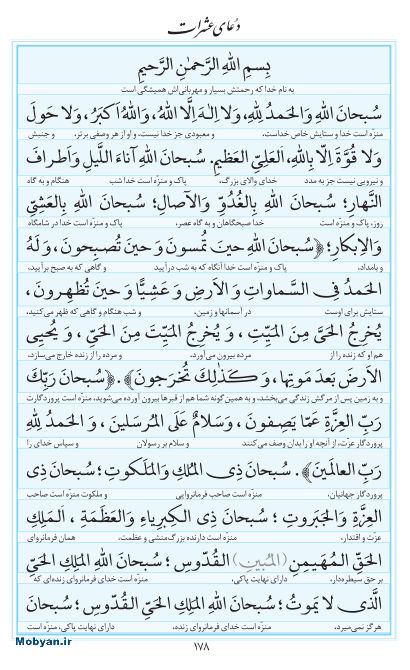 دعای عشرات
بِسمِ اللهِ الرَّحمٰنِ الرَّحیمِ
به نام خدا که رحمتش بسیار و مهربانی‌اش همیشگی است
سُبحانَ اللهِ وَالحَمدُ لِلّٰهِ، وَلا اِلٰهَ اِلَّا اللهُ، وَاللهُ اَکبَرُ، وَلا حَولَ
منزّه است خدا و ستایش خاص خداست، و معبودی جز خدا نیست، و او از هر وصفی برتر. و جنبش
وَلا قُوَّةَ اِلّا بِاللهِ، العَلِیِّ العَظیمِ. سُبحانَ اللهِ آناءَ اللَّیلِ وَاَطرافَ
و نیرویی نیست جز به مدد خدای والای بزرگ، پاک و منزّه است خدا شب هنگام و به گاه
النَّهارِ؛ سُبحانَ اللهِ بِالغُدُوِّ وَالآصالِ؛ سُبحانَ اللهِ بِالعَشِیِّ
روز، پاک و منزّه است خدا صبحگاهان و به گاه عصر، پاک و منزّه است خدا در شامگاه
وَالاِبکارِ؛ ﴿سُبحانَ اللهِ حینَ تُمسونَ وَ حینَ تُصبِحونَ، وَ لَهُ
و بامداد، پاک و منزّه است خدا آنگاه که به شب درآیید و گاهی که به صبح برآیید،
الحَمدُ فِی السَّماواتِ وَ الاَرضِ وَ عَشِیًّا وَ حینَ تُظهِرونَ،
ستایش برای اوست در آسمانها و زمین، و شب هنگام و گاهی که ظهر می‌کنید.
یُخرِجُ الحَیَّ مِنَ المَیِّتِ، وَ یُخرِجُ المَیِّتَ مِنَ الحَیِّ، وَ یُحیِی
هم او که زنده را از مرده بیرون می‌آورد. و مرده را از زنده خارج می‌سازد،
الاَرضَ بَعدَ مَوتِها، وَ کَذٰلِكَ تُخرَجونَ﴾. ﴿سُبحانَ رَبِّكَ
و به زمین پس از مرگش زندگی می‌بخشد، و به همین گونه شما هم از قبرها بیرون آورده می‌شوید، منزّه است پروردگارت
رَبِّ العِزَّةِ عَمّا یَصِفونَ، وَسَلامٌ عَلَی المُرسَلینَ، وَ الحَمدُ لِلّٰهِ
پروردگار عزّت، از آنچه او را بدان وصف می‌کنند و سلام بر رسولان و سپاس خدای را
رَبِّ العالَمینَ﴾. سُبحانَ ذِی المُلكِ وَالمَلَکوتِ؛ سُبحانَ ذِی
پروردگار جهانیان، منزّه است صاحب فرمانروایی و ملکوت منزّه است صاحب
العِزَّةِ وَ الجَبَروتِ؛ سُبحانَ ذِی الکِبرِیاءِ وَالعَظَمَةِ، اَلمَلِكِ
عزّت و اقتدار، منزّه است دارنده بزرگ‌منشی و عظمت، همان فرمانروای
الحَقِّ المُهَیمِنِ (المُبینِ) القُدّوسِ؛ سُبحانَ اللهِ المَلِكِ الحَیِّ
بر حق سیطره‌دار، دارای نهایت پاکی، منزّه است خدای فرمانروای زنده‌ای که
الَّذی لا یَموتُ؛ سُبحانَ اللهِ المَلِكِ الحَیِّ القُدّوسِ؛ سُبحانَ
هرگز نمی‌میرد. منزّه است خدای فرمانروای زنده، دارای نهایت پاکی، منزّه است
۱۷۸
Mobyan.ir